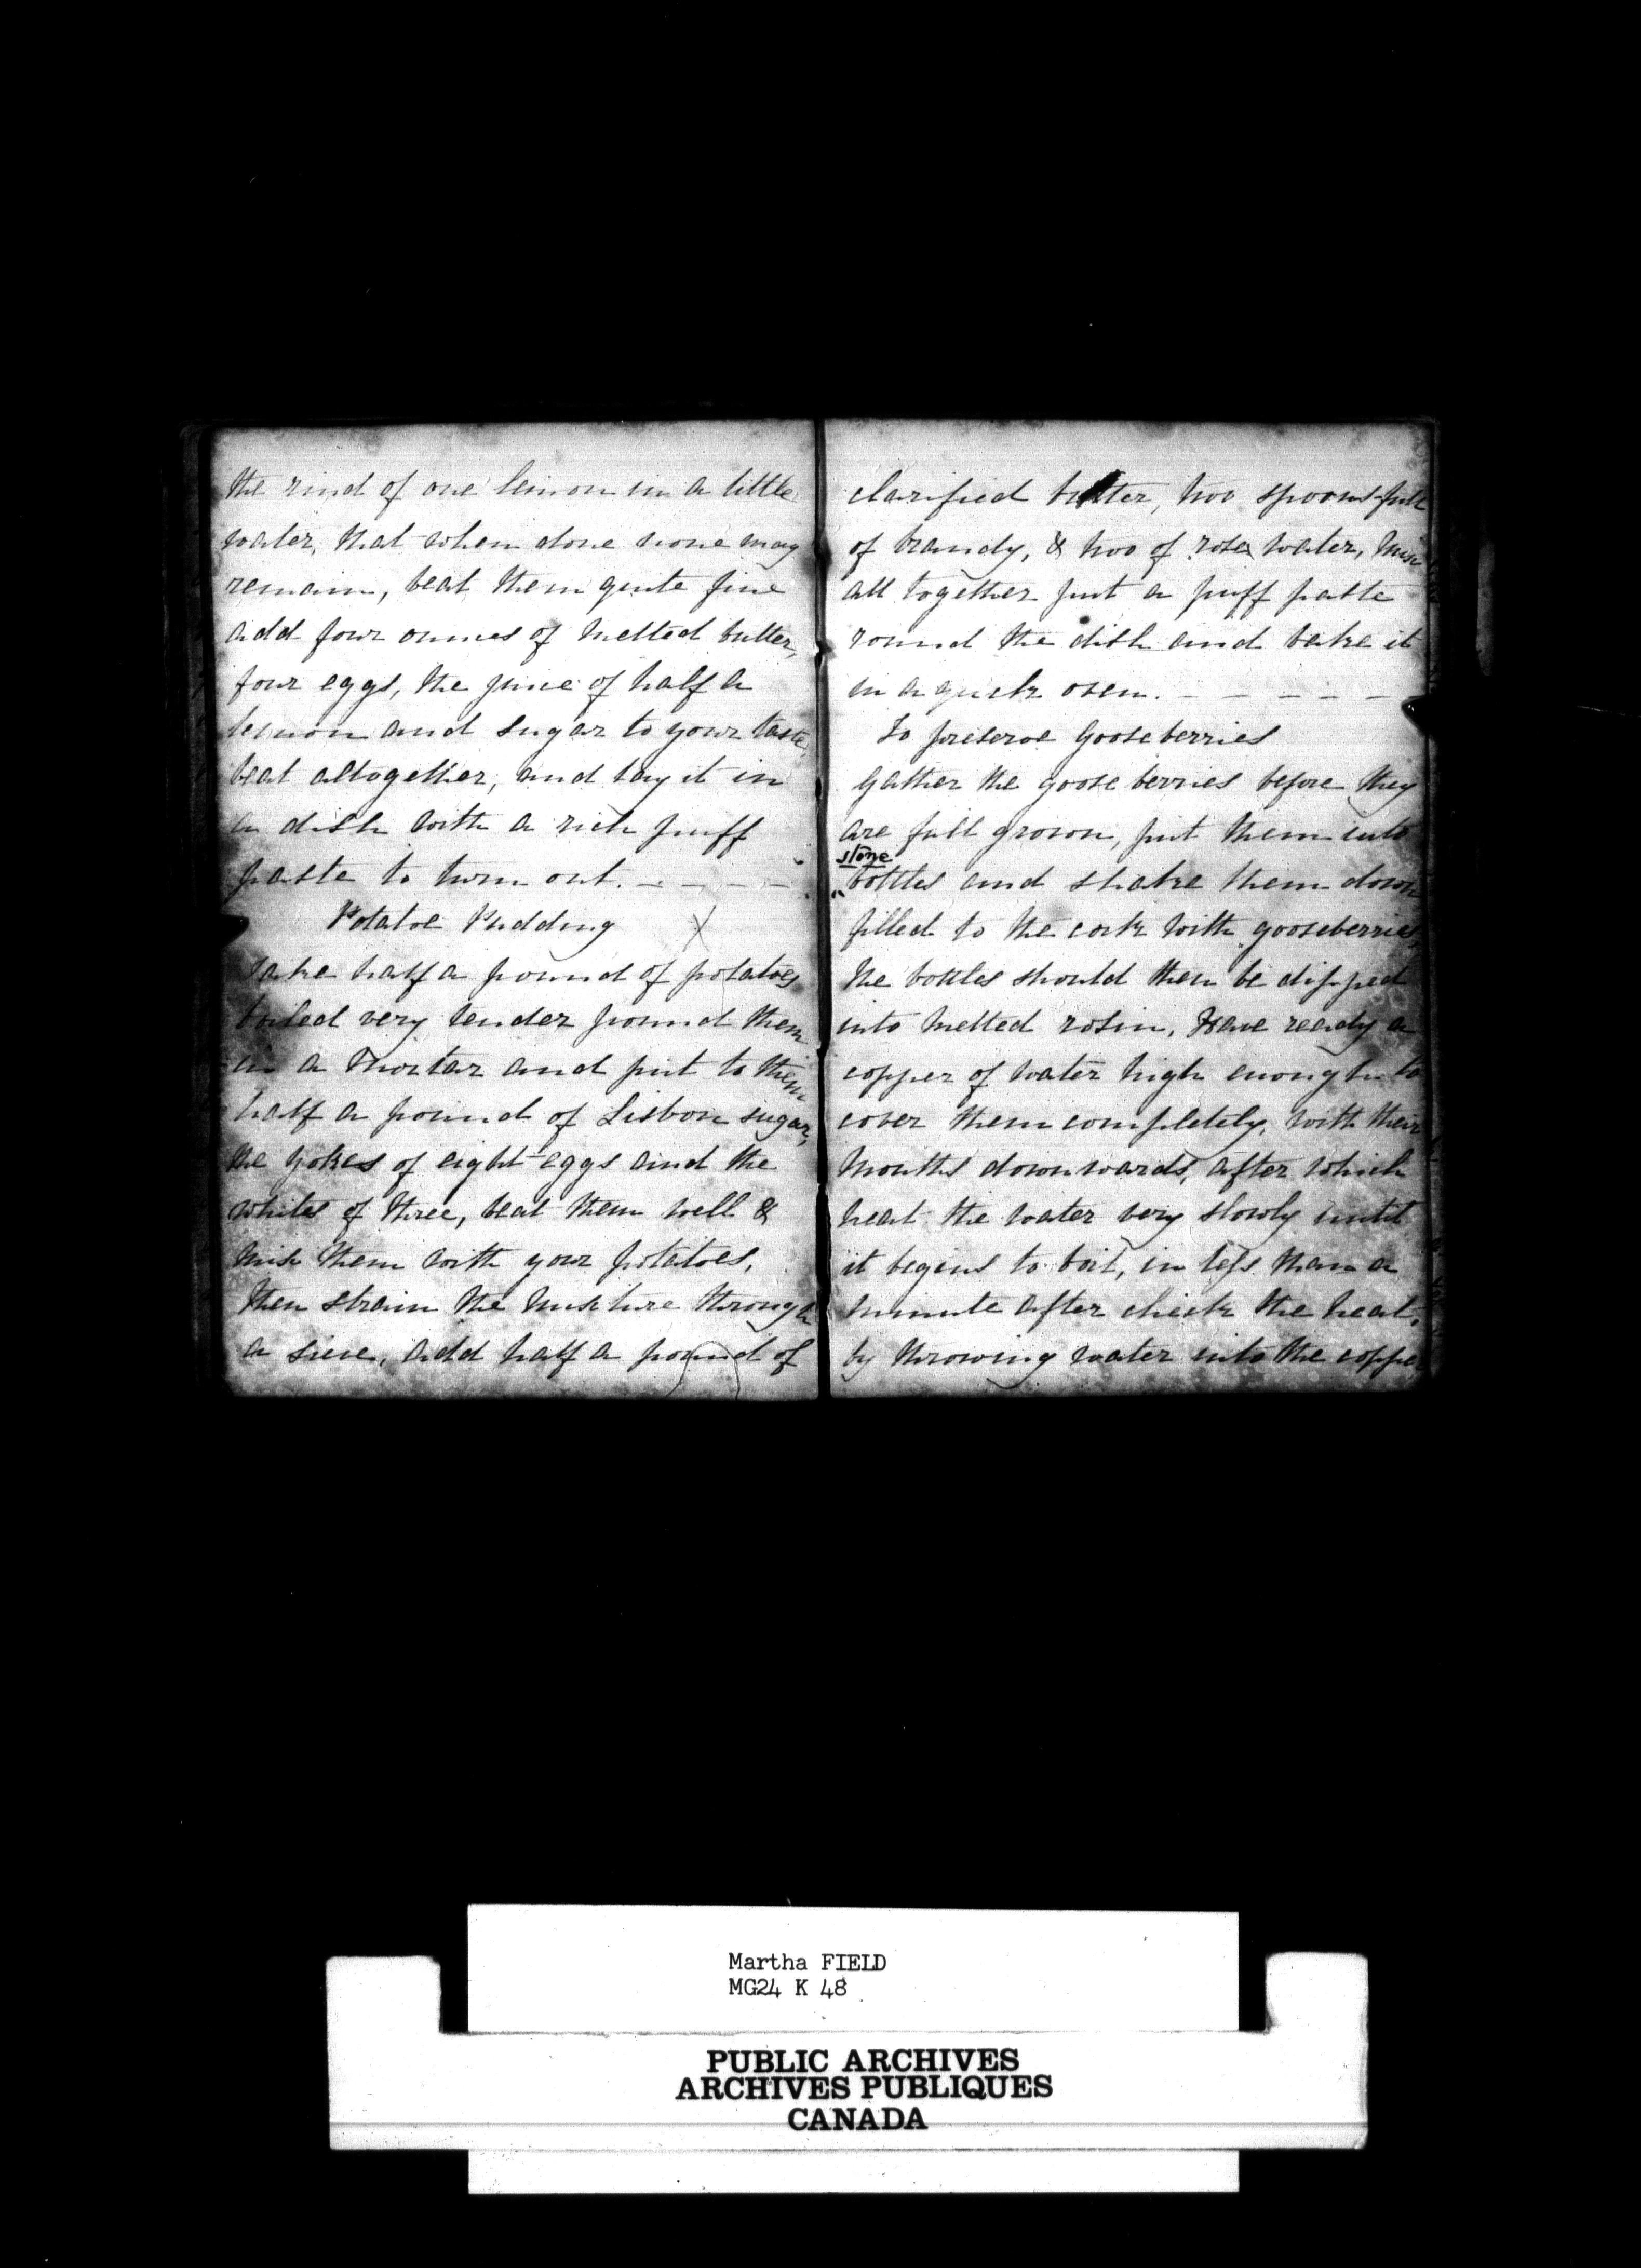 the rind of one lemon in a little
water, that when done none may
remain, beat them quite fine
add four ounces of melted butter,
four eggs, the juice of half a
lemon and sugar to your taste,
beat altogether, and lay it in
a dish with a rich puff
paste to turn out. - - - -
Potatoe Pudding X
Take half a pound of potatoes
boiled very tender pound them
in a mortar and put to them
half a pound of Lisbon sugar,
the yokes of eight eggs and the
whites of three, beat them well &
mix them with your potatoes,
then strain the mixture through
a sieve, add half a pound of
clarified butter, two spoonsfull
of brandy, & two of rose water, mix
all together put a puff paste
round the dish and bake it
in a quick oven. - - - - -
To preserve Gooseberries
Gather the goose berries before they
are full grown, put them into
stone
bottles and shake them down
filled to the cork with gooseberries,
the bottles should then be dipped
into melted rosin, Have ready a
copper of water high enough to
cover them completely, with their
mouths downwards, after which
heat the water very slowly until
it begins to boil, in less than a
minute after check the heat,
by throwing water into the copper,
Martha FIELD
MG24 K 48
PUBLIC ARCHIVES
ARCHIVES PUBLIQUES
CANADA